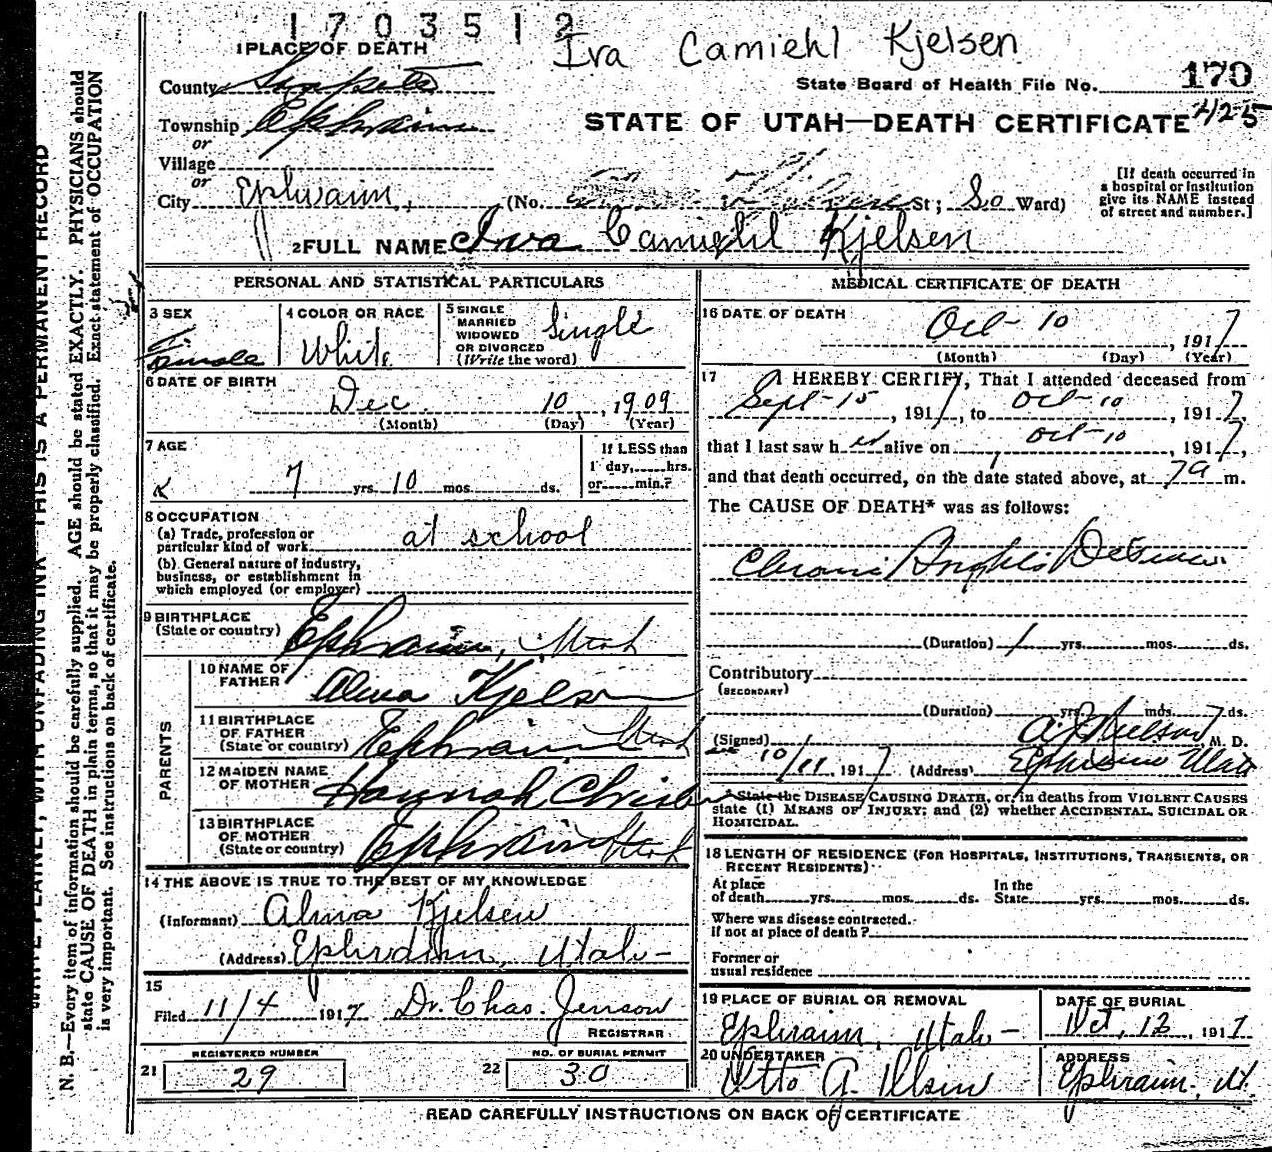 1703512
Iva Camiehl Kjelsen
1 PLACE OF DEATH
County Sanpete
State Board of Health File No. 170
425
Township Ephraim
STATE OF UTAH—DEATH CERTIFICATE
or
Village
or
City Ephraim, (No. St; So Ward)
[If death occurred in a hospital or institution give its NAME instead of street and number.]
2 FULL NAME Iva Camiehl Kjelsen
PERSONAL AND STATISTICAL PARTICULARS
3 SEX
Female
4 COLOR OR RACE
White
5 SINGLE
MARRIED
WIDOWED
OR DIVORCED
(Write the word)
Single
6 DATE OF BIRTH
Dec. 10, 1909
(Month) (Day) (Year)
7 AGE
7 yrs. 10 mos. ds.
If LESS than
1 day, hrs.
or min.?
8 OCCUPATION
(a) Trade, profession or
particular kind of work at school
(b) General nature of industry,
business, or establishment in
which employed (or employer)
9 BIRTHPLACE
(State or country) Ephraim, Utah
PARENTS
10 NAME OF
FATHER Alma Kjelsen
11 BIRTHPLACE
OF FATHER
(State or country) Ephraim Utah
12 MAIDEN NAME
OF MOTHER Hannah
13 BIRTHPLACE
OF MOTHER
(State or country) Ephraim Utah
14 THE ABOVE IS TRUE TO THE BEST OF MY KNOWLEDGE
(Informant) Alma Kjelsen
(Address) Ephraim, Utah-
15
Filed 11/4 1917 Dr. Chas. Jenson
REGISTRAR
REGISTERED NUMBER
21 29
NO. OF BURIAL PERMIT
22 30
MEDICAL CERTIFICATE OF DEATH
16 DATE OF DEATH
Oct-10, 1917
(Month) (Day) (Year)
17 I HEREBY CERTIFY, That I attended deceased from
Sept-15, 1917, to Oct-10, 1917,
that I last saw her alive on Oct-10, 1917,
and that death occurred, on the date stated above, at 7a m.
The CAUSE OF DEATH* was as follows:
(Duration) 1 yrs. mos. ds.
Contributory
(SECONDARY)
(Duration) yrs. mos. 7 ds.
(Signed) M. D.
10/11, 1917 (Address) Ephraim Utah
*State the DISEASE CAUSING DEATH, or, in deaths from VIOLENT CAUSES
state (1) MEANS OF INJURY; and (2) whether ACCIDENTAL, SUICIDAL OR
HOMICIDAL.
18 LENGTH OF RESIDENCE (FOR HOSPITALS, INSTITUTIONS, TRANSIENTS, OR
RECENT RESIDENTS)
At place
of death yrs. mos. ds.
In the
State yrs. mos. ds.
Where was disease contracted.
if not at place of death?
Former or
usual residence
19 PLACE OF BURIAL OR REMOVAL
Ephraim, Utah-
DATE OF BURIAL
Oct, 12, 1917
20 UNDERTAKER
Otto A.
ADDRESS
Ephraim, Ut.
READ CAREFULLY INSTRUCTIONS ON BACK OF CERTIFICATE
WRITE PLAINLY, WITH UNFADING INK—THIS IS A PERMANENT RECORD
N. B.—Every item of information should be carefully supplied. AGE should be stated EXACTLY. PHYSICIANS should
state CAUSE OF DEATH in plain terms, so that it may be properly classified. Exact statement of OCCUPATION
is very important. See instructions on back of certificate.